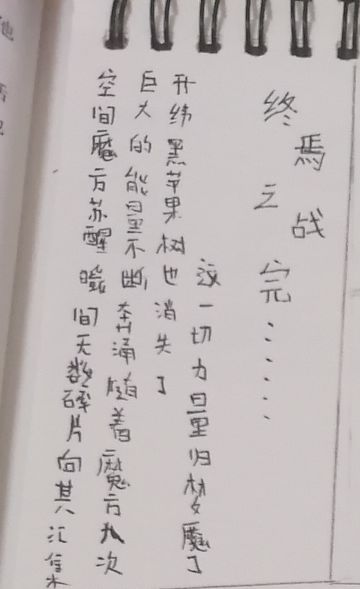 终焉之战
完……
这一切力量归梦魇了
升纬黑苹果树也消失了
巨大的能量不断奔涌随着魔方次
空间魔方苏醒瞬间无数碎片向其汇集